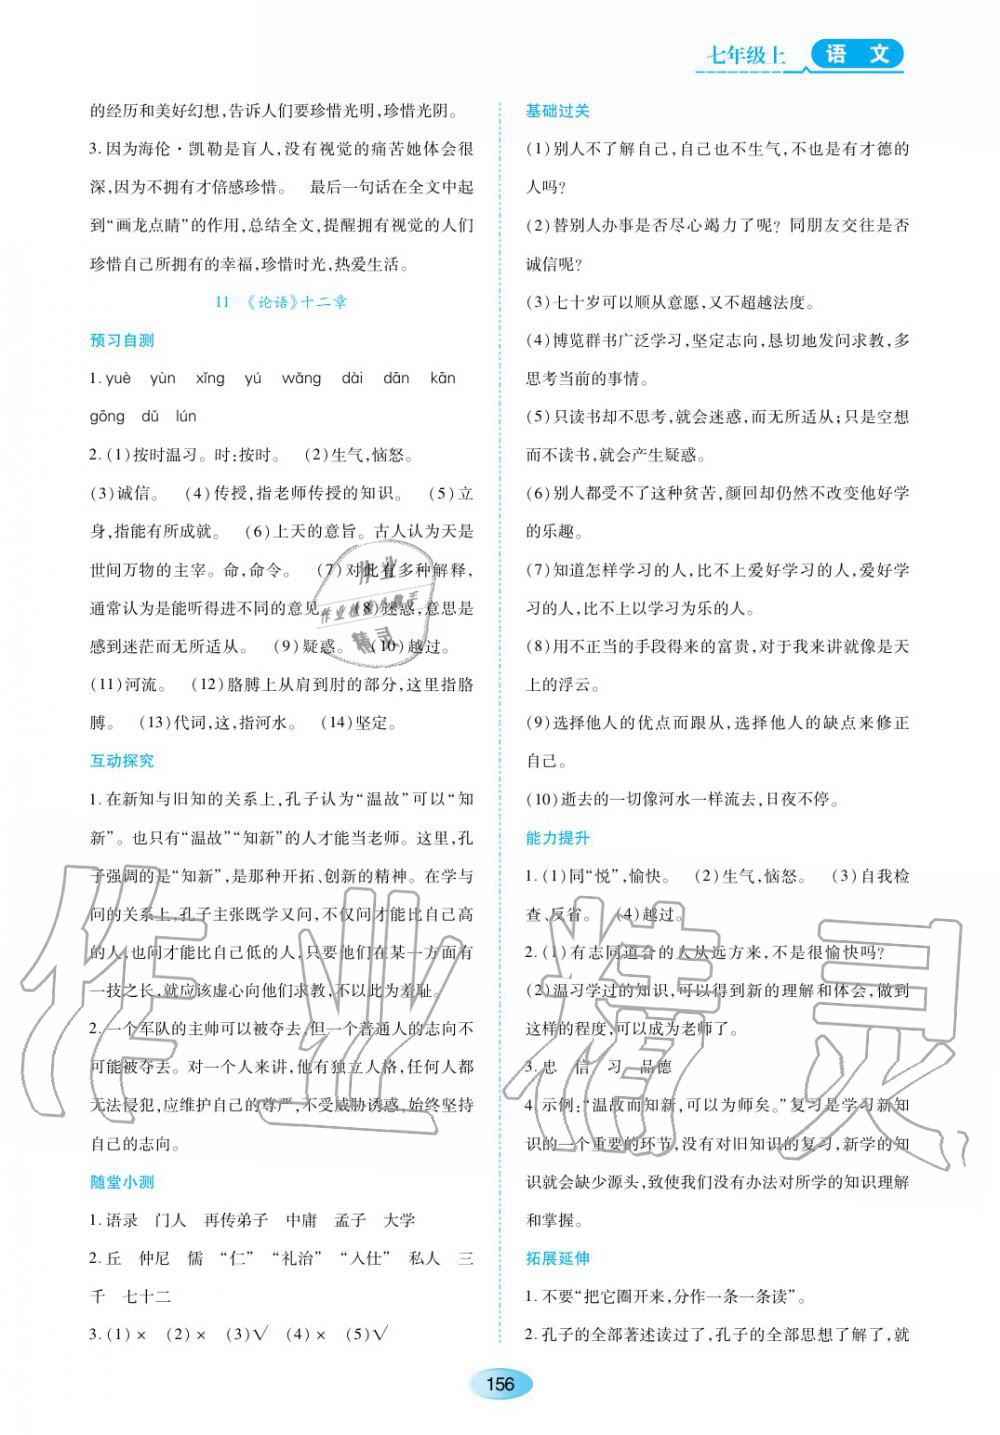 七年级上 语 文
的经历和美好幻想,告诉人们要珍惜光明,珍惜光阴。
3. 因为海伦·凯勒是盲人,没有视觉的痛苦她体会很
深,因为不拥有才倍感珍惜。 最后一句话在全文中起
到“画龙点睛”的作用,总结全文,提醒拥有视觉的人们
珍惜自己所拥有的幸福,珍惜时光,热爱生活。
11 《论语》十二章
预习自测
1. yuè yùn xǐng yú wǎng dài dān kān
gōng dǔ lún
2. (1)按时温习。时:按时。 (2)生气,恼怒。
(3)诚信。 (4)传授,指老师传授的知识。 (5)立
身,指能有所成就。 (6)上天的意旨。古人认为天是
世间万物的主宰。命,命令。 (7)对此有多种解释,
通常认为是能听得进不同的意见 (8)迷惑,意思是
感到迷茫而无所适从。 (9)疑惑。 (10)越过。
(11)河流。 (12)胳膊上从肩到肘的部分,这里指胳
膊。 (13)代词,这,指河水。 (14)坚定。
互动探究
1. 在新知与旧知的关系上,孔子认为“温故”可以“知
新”。也只有“温故”“知新”的人才能当老师。这里,孔
子强调的是“知新”,是那种开拓、创新的精神。在学与
问的关系上,孔子主张既学又问,不仅问才能比自己高
的人,也问才能比自己低的人,只要他们在某一方面有
一技之长,就应该虚心向他们求教,不以此为羞耻。
2. 一个军队的主帅可以被夺去,但一个普通人的志向不
可能被夺去。对一个人来讲,他有独立人格,任何人都
无法侵犯,应维护自己的尊严,不受威胁诱惑,始终坚持
自己的志向。
随堂小测
1. 语录 门人 再传弟子 中庸 孟子 大学
2. 丘 仲尼 儒 “仁” “礼治” “入仕” 私人 三
千 七十二
3. (1)× (2)× (3)√ (4)× (5)√
基础过关
(1)别人不了解自己,自己也不生气,不也是有才德的
人吗?
(2)替别人办事是否尽心竭力了呢? 同朋友交往是否
诚信呢?
(3)七十岁可以顺从意愿,又不超越法度。
(4)博览群书广泛学习,坚定志向,恳切地发问求教,多
思考当前的事情。
(5)只读书却不思考,就会迷惑,而无所适从;只是空想
而不读书,就会产生疑惑。
(6)别人都受不了这种贫苦,颜回却仍然不改变他好学
的乐趣。
(7)知道怎样学习的人,比不上爱好学习的人,爱好学
习的人,比不上以学习为乐的人。
(8)用不正当的手段得来的富贵,对于我来讲就像是天
上的浮云。
(9)选择他人的优点而跟从,选择他人的缺点来修正
自己。
(10)逝去的一切像河水一样流去,日夜不停。
能力提升
1. (1)同“悦”,愉快。 (2)生气,恼怒。 (3)自我检
查、反省。 (4)越过。
2. (1)有志同道合的人从远方来,不是很愉快吗?
(2)温习学过的知识,可以得到新的理解和体会,做到
这样的程度,可以成为老师了。
3. 忠 信 习 品德
4. 示例:“温故而知新,可以为师矣。”复习是学习新知
识的一个重要的环节,没有对旧知识的复习,新学的知
识就会缺少源头,致使我们没有办法对所学的知识理解
和掌握。
拓展延伸
1. 不要“把它圈开来,分作一条一条读”。
2. 孔子的全部著述读过了,孔子的全部思想了解了,就
156
作业精灵